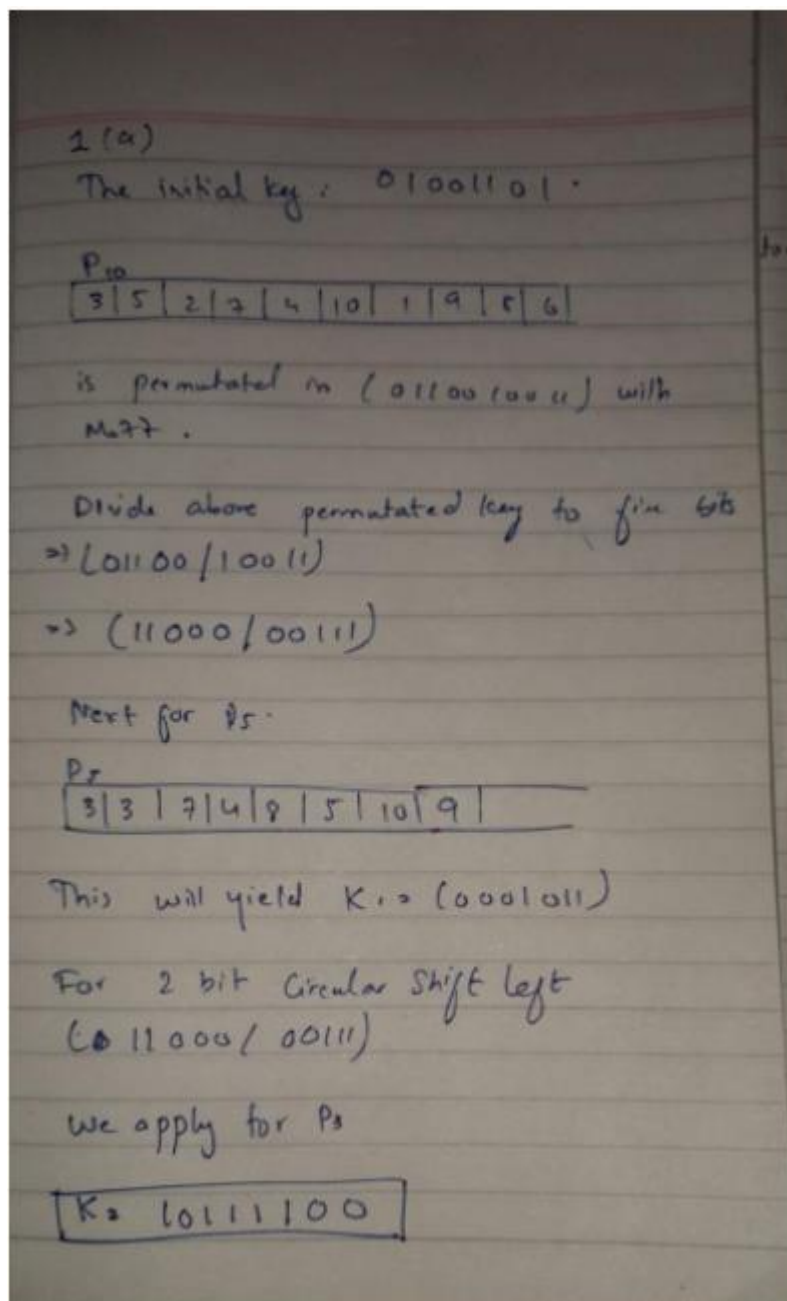 1 (a)
The initial key : 01001101.
P10
3 | 5 | 2 | 7 | 4 | 10 | 1 | 9 | 8 | 6 |
is permutated in (0110010011) with
Divide above permutated key to bits
=> (01100/10011)
=> (11000/00111)
Next for
3 | 3 | 7 | 4 | 8 | 5 | 10 | 9 |
This will yield K1 = (0001011)
For 2 bit Circular Shift left
11000/ 00111)
We apply for P8
K2 10111100